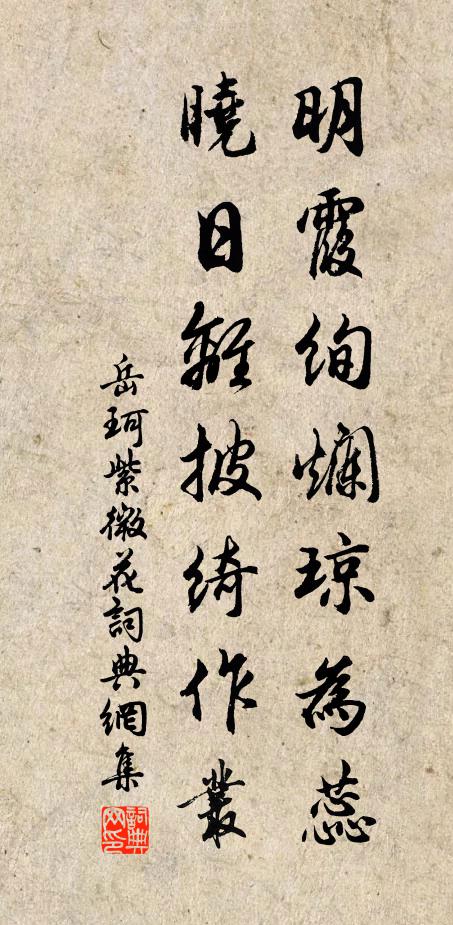 明霞絢爛琼為蕊
曉日離披綺作叢
岳珂紫微花詞典網集
詞典網印